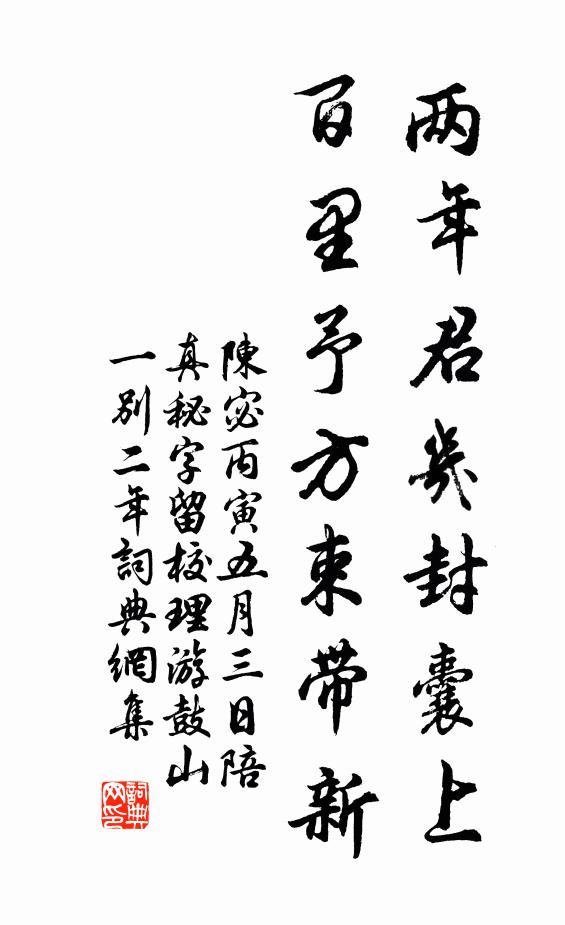 两年君几封囊上
百里予方束带新
陳宓丙寅五月三日陪
真秘字留校理游鼓山
一别二年詞典網集
詞典网印